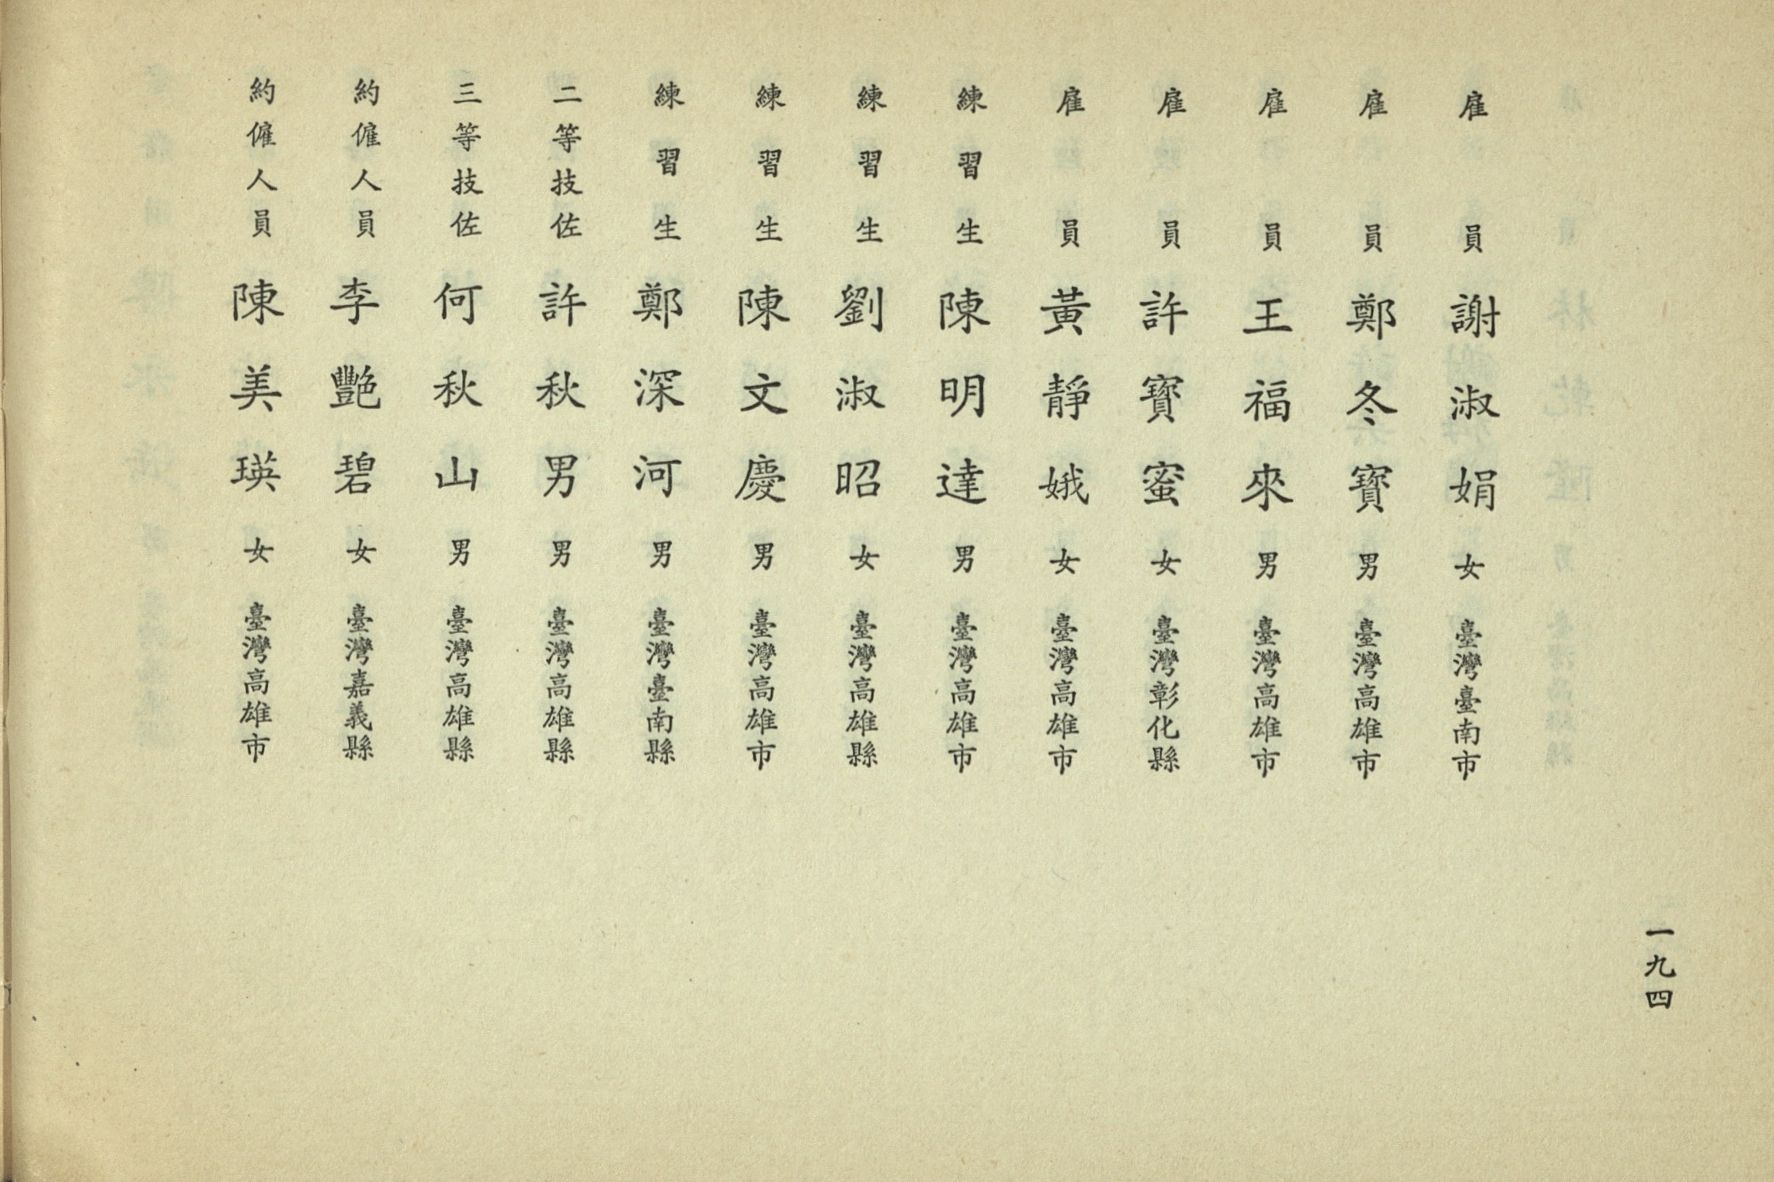 雇員 謝淑娟 女 臺灣臺南市
雇員 鄭冬寶 男 臺灣高雄市
雇員 王福來 男 臺灣高雄市
雇員 許寶蜜 女 臺灣彰化縣
雇員 黃靜娥 女 臺灣高雄市
練習生 陳明達 男 臺灣高雄市
練習生 劉淑昭 女 臺灣高雄縣
練習生 陳文慶 男 臺灣高雄市
練習生 鄭深河 男 臺灣臺南縣
二等技佐 許秋男 男 臺灣高雄縣
三等技佐 何秋山 男 臺灣高雄縣
約僱人員 李艷碧 女 臺灣嘉義縣
約僱人員 陳美瑛 女 臺灣高雄市
一九四